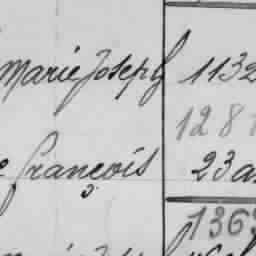 Marie Joseph 1132
128
françois 23 a
136